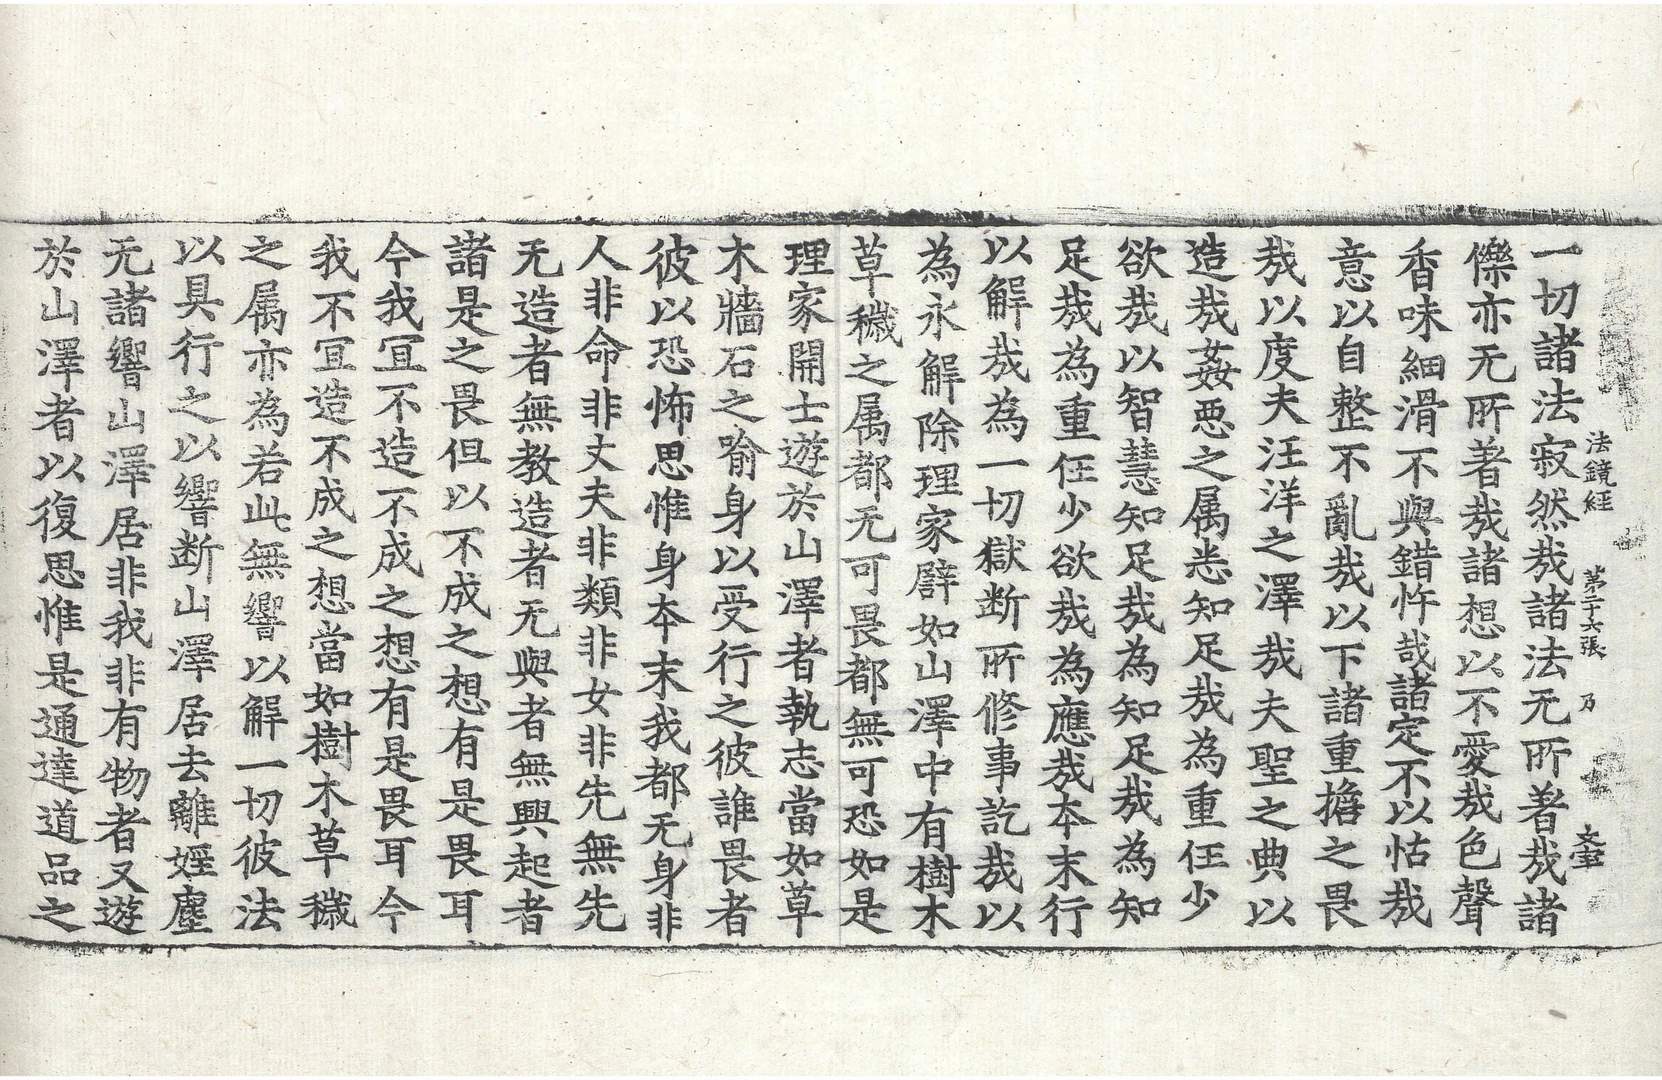 法鏡經 第二十六張 乃
一切諸法寂然哉諸法无所著哉諸
傑亦无所著哉諸想以不愛哉色聲
香味細滑不與錯忤哉諸定不以怙哉
意以自整不亂哉以下諸重擔之畏
哉以度夫汪洋之澤哉夫聖之典以
造哉姦惡之属恙知足哉為重任少
欲哉以智慧知足哉為知足哉為知
足哉為重任少欲哉為應哉本末行
以解哉為一切獄断所修事訖哉以
為永解除理家辟如山澤中有樹木
草穢之属都无可畏都無可恐如是
理家開士遊於山澤者執志當如草
木牆石之喻身以受行之彼誰畏者
彼以恐怖思惟身本末我都无身非
人非命非丈夫非類非女非先無先
无造者無教造者无與者無興起者
諸是之畏但以不成之想有是畏耳
今我冝不造不成之想有是畏耳今
我不冝造不成之想當如樹木草穢
之属亦為若此無響以解一切彼法
以具行之以響断山澤居去離婬塵
无諸響山澤居非我非有物者又遊
於山澤者以復思惟是通達道品之